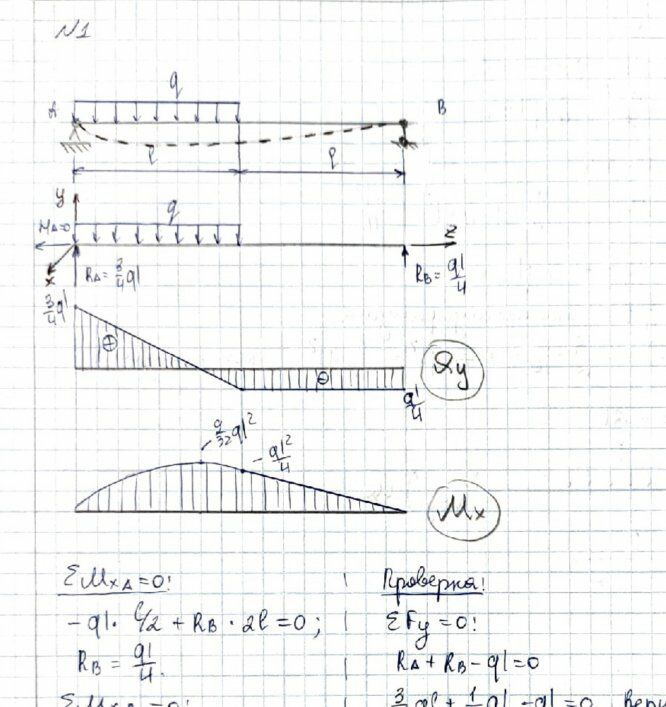 N1
q
A B
l l
y
MA=0 q z
x RA = 3/4 ql RB = ql/4
3/4 ql
⊕ ⊖ Qy
ql/4
- 9/32 ql²
- ql²/4
Mx
ΣMxA = 0!
- ql · l/2 + RB · 2l = 0;
RB = ql/4.
Проверка!
ΣFy = 0!
RA + RB - ql = 0
3/4 ql + 1/4 ql - ql = 0